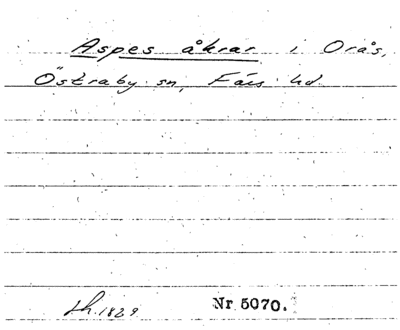 Aspes åkrar i Orås,
Östraby sn, Färs hd.
Lh. 1829 Nr 5070.